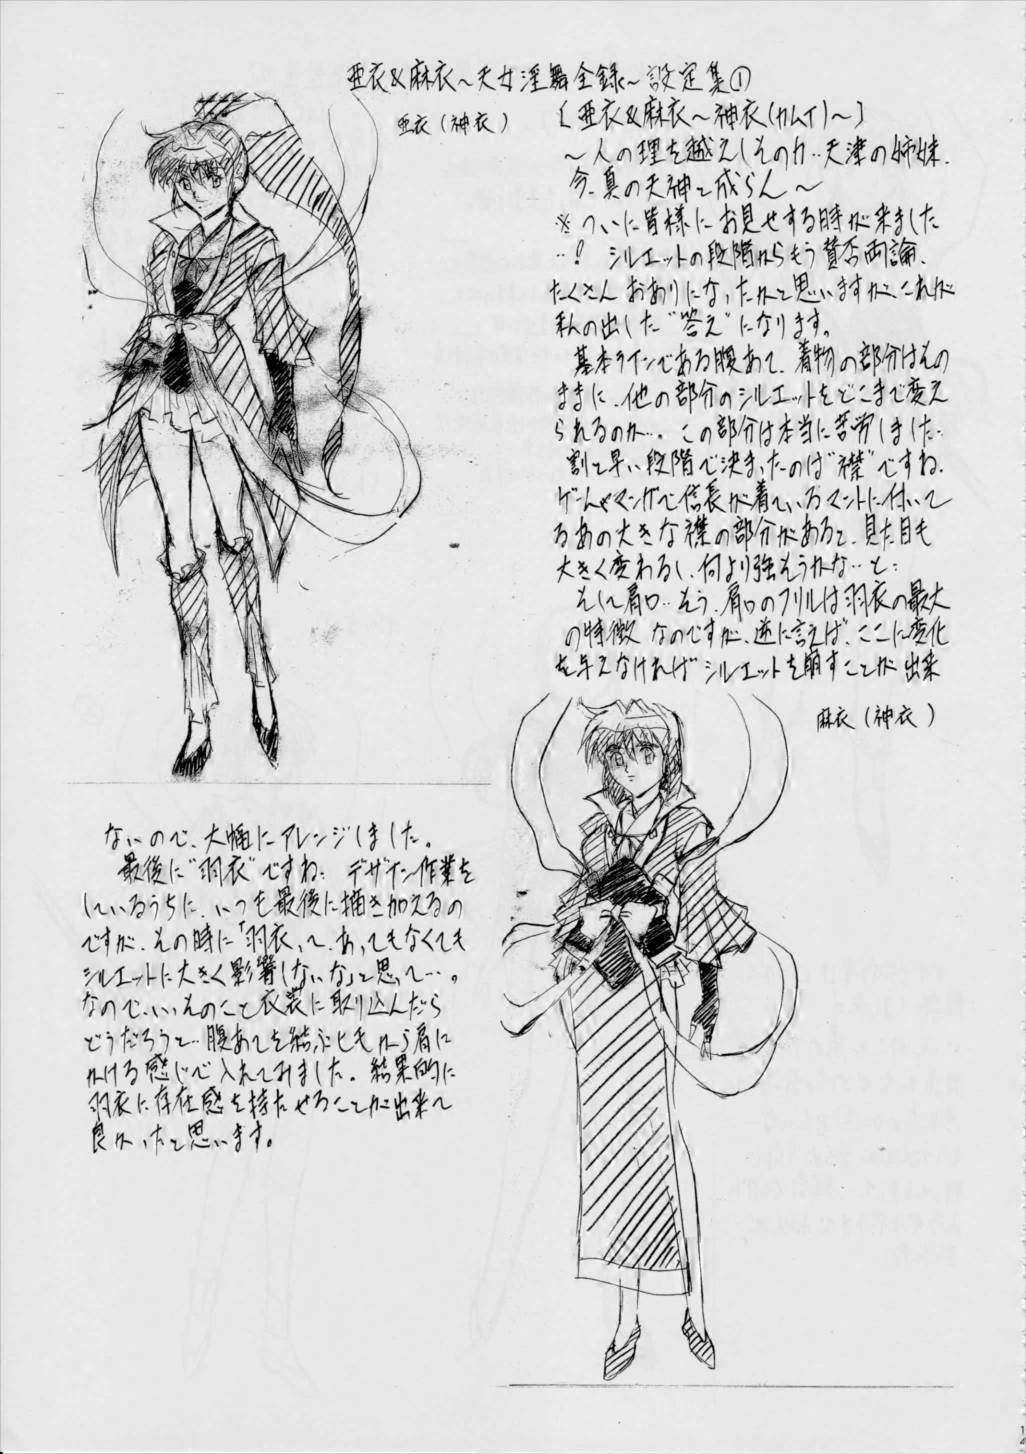 亜衣&麻衣～天女淫舞全録～設定集①
亜衣(神衣)
〔亜衣&麻衣～神衣(カムイ)～〕
～人の理を越えしその力‥天津の姉妹、
今、真の天神と成らん～
※ついに皆様にお見せする時が来ました
‥！シルエットの段階からもう賛否両論、
たくさんおありになったかと思いますが、これが
私の出した“答え”になります。
基本ラインである腹あて、着物の部分はその
ままに、他の部分のシルエットをどこまで変え
られるのか‥。この部分は本当に苦労しました‥
割と早い段階で決まったのは“襟”ですね、
ゲームやマンガで信長が着ているマントに付いて
るあの大きな襟の部分があると、見た目も
大きく変わるし、何より強そうかな‥と‥
そして肩口‥そう、肩口のフリルは羽衣の最大
の特徴なのですが、逆に言えば、ここに変化
を与えなければシルエットを崩すことが出来
麻衣(神衣)
ないので、大幅にアレンジしました。
最後に“羽衣”ですね‥デザイン作業を
しているうちに、いつも最後に描き加えるの
ですが、その時に「羽衣、て、あってもなくても
シルエットに大きく影響しないな」と思って‥。
なので、いっそのこと衣装に取り込んだら
どうだろうと‥腹あてを結ぶヒモから肩に
かける感じで入れてみました。結果的に
羽衣に存在感を持たせることが出来て
良かったと思います。